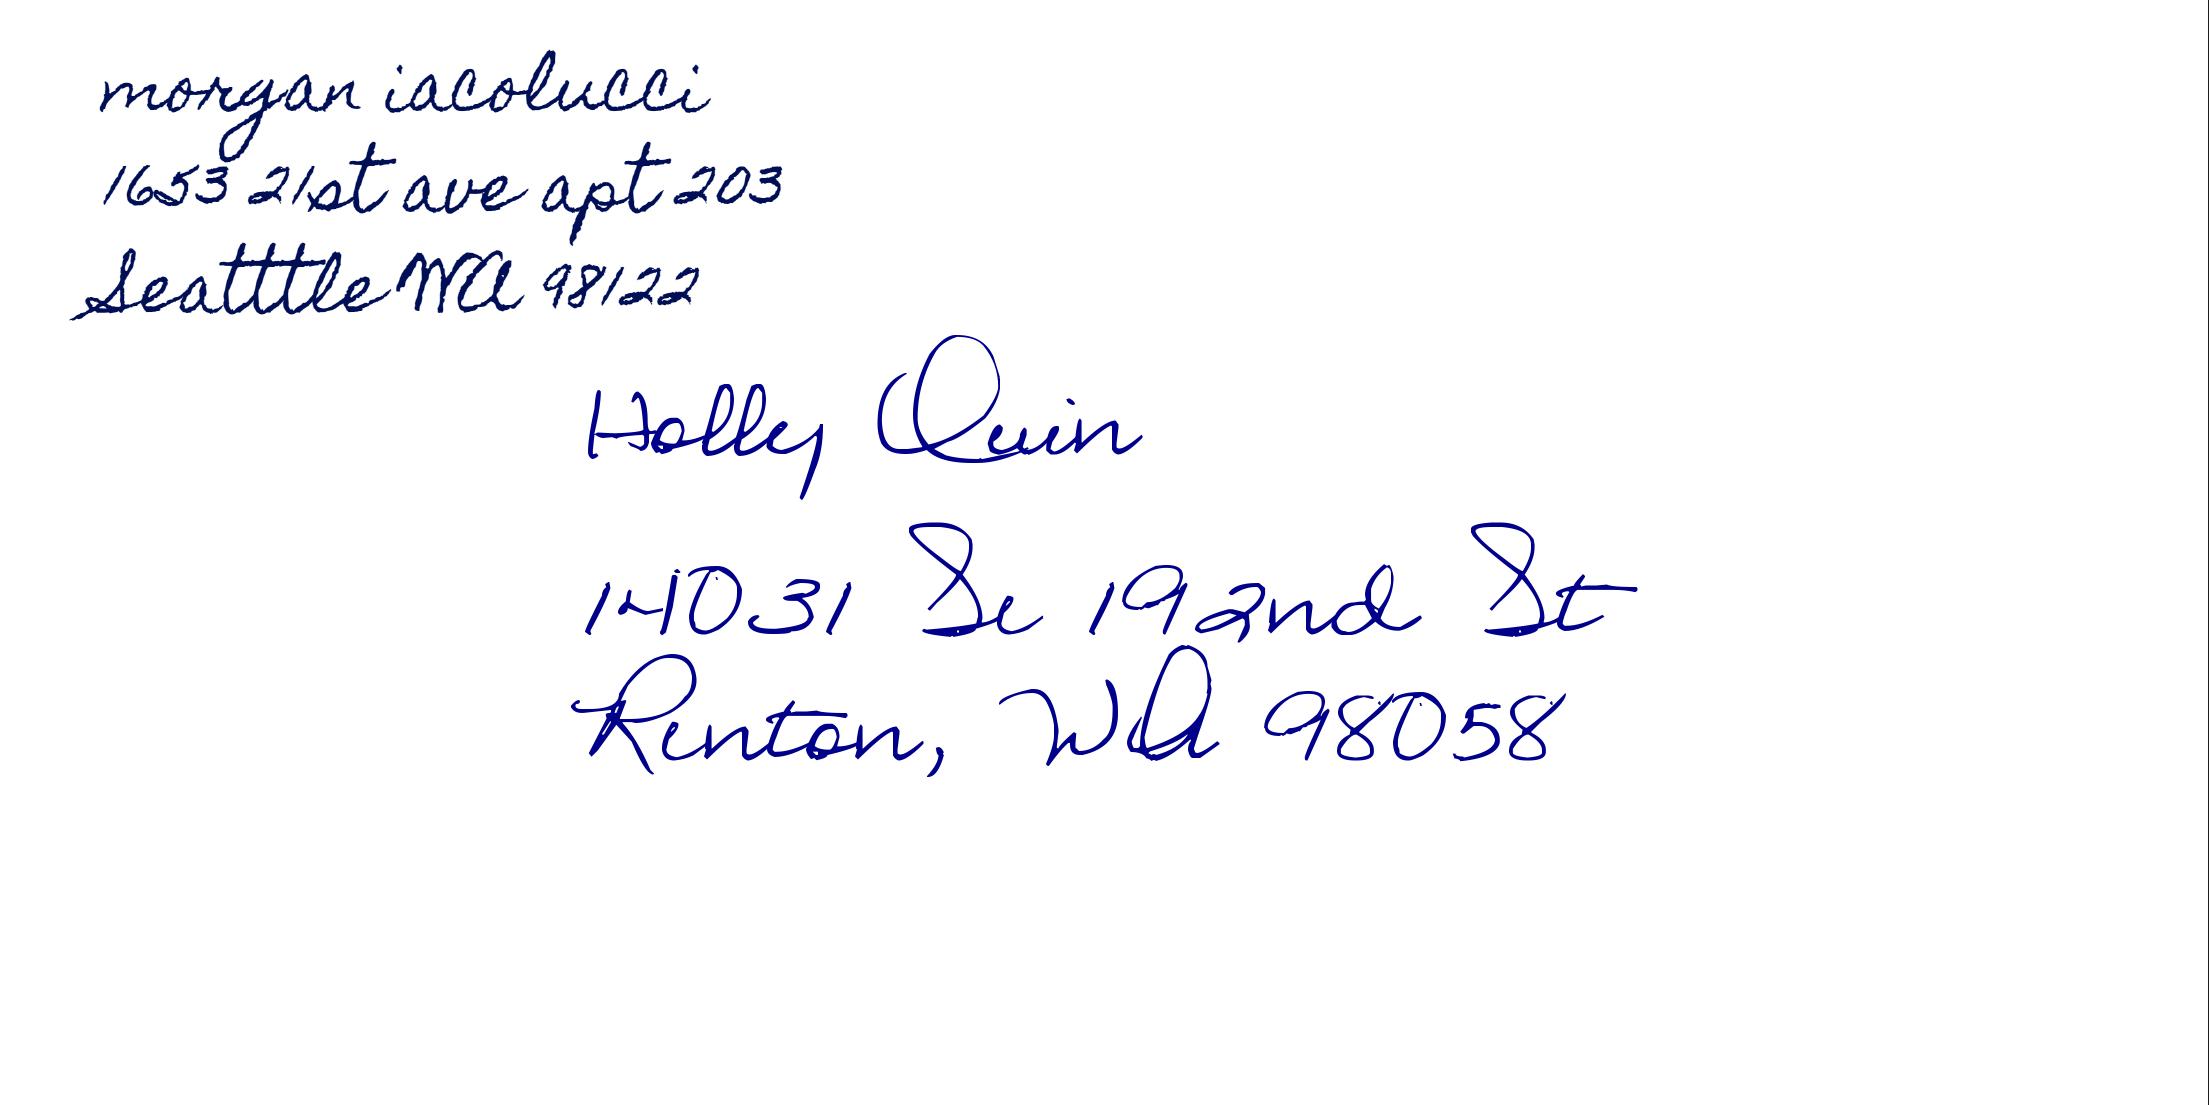 morgan iacolucci
1653 21st ave apt 203
Seatttle WA 98122
Holly Quin
14031 Se 192nd St
Renton, WA 98058